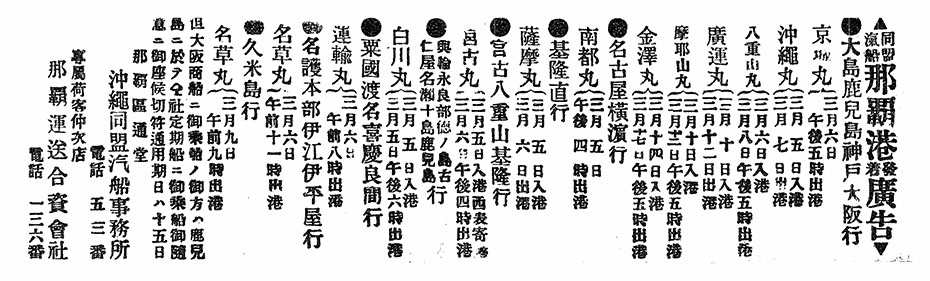 ▲同盟汽船那覇港發着廣告▼
●大島鹿兒島神戸大阪行
京城丸 三月六日 午後五時出港
沖繩丸 三月五日入港 三月七日出港
八重山丸 三月六日入港 三月八日午後五時出港
廣運丸 三月十日入港 三月十二日出港
摩耶山丸 三月十日入港
金澤丸 三月十四日入港
●名古屋橫濱行
南都丸 三月五日 午後四時出港
●基隆直行
薩摩丸 三月五日入港 三月六日出港
●宮古八重山基隆行
宮古丸 三月五日入港西表寄港 三月六日午後四時出港
●與論永良部德ノ島古仁屋名瀨十島鹿兒島行
白川丸 三月五日入港 三月五日午後六時出港
●粟國渡名喜慶良間行
運輸丸 三月六日 午前八時出港
●名護本部伊江伊平屋行
名草丸 三月六日 午前十一時出港
●久米島行
名草丸 三月九日 午前九時出港
但大阪商船ニ御乘船ノ御方ハ鹿兒
島ニ於テ仝社定期船ニ御乘船御隨
意ニ御座候切符通用期日ハ十五日
那覇區通堂
沖繩同盟汽船事務所
電話 五三番
專屬荷客仲次店
那覇運送合資會社
電話 一三六番